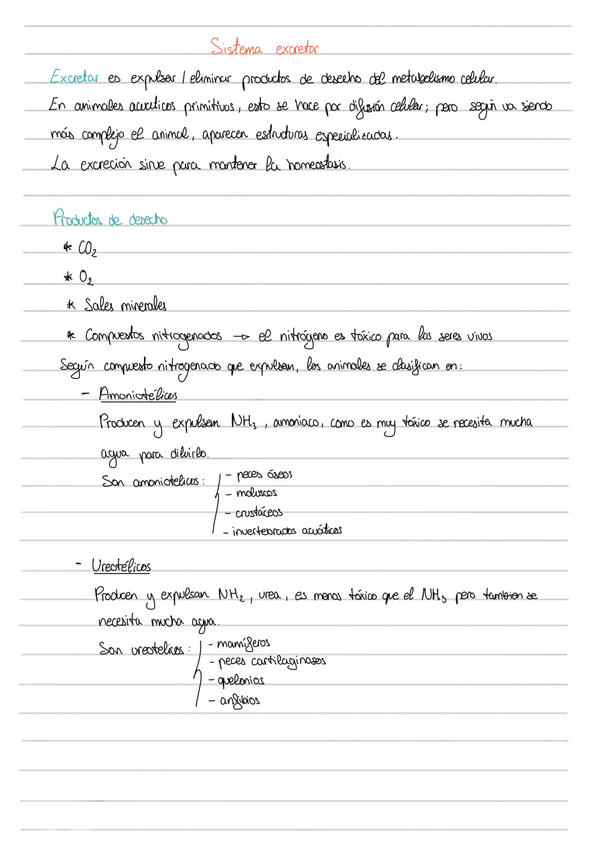 Sistema excretor
Excretar es expulsar / eliminar productos de desecho del metabolismo celular.
En animales acuáticos primitivos, esto se hace por difusión celular; pero según va siendo
más complejo el animal, aparecen estructuras especializadas.
La excreción sirve para mantener la homeostasis.
Productos de desecho
* CO₂
* O₂
* Sales minerales
* Compuestos nitrogenados → el nitrógeno es tóxico para los seres vivos
Según compuesto nitrogenado que expulsen, los animales se clasifican en:
- Amoniotélicos
Producen y expulsan NH₃, amoniaco, como es muy tóxico se necesita mucha
agua para diluirlo.
Son amoniotelicos:
- peces óseos
- moluscos
- crustáceos
- invertebrados acuáticos
- Ureotélicos
Producen y expulsan NH₂, urea, es menos tóxico que el NH₃ pero tambien se
necesita mucha agua.
Son ureotelicos:
- mamíferos
- peces cartilaginosos
- quelonios
- anfibios